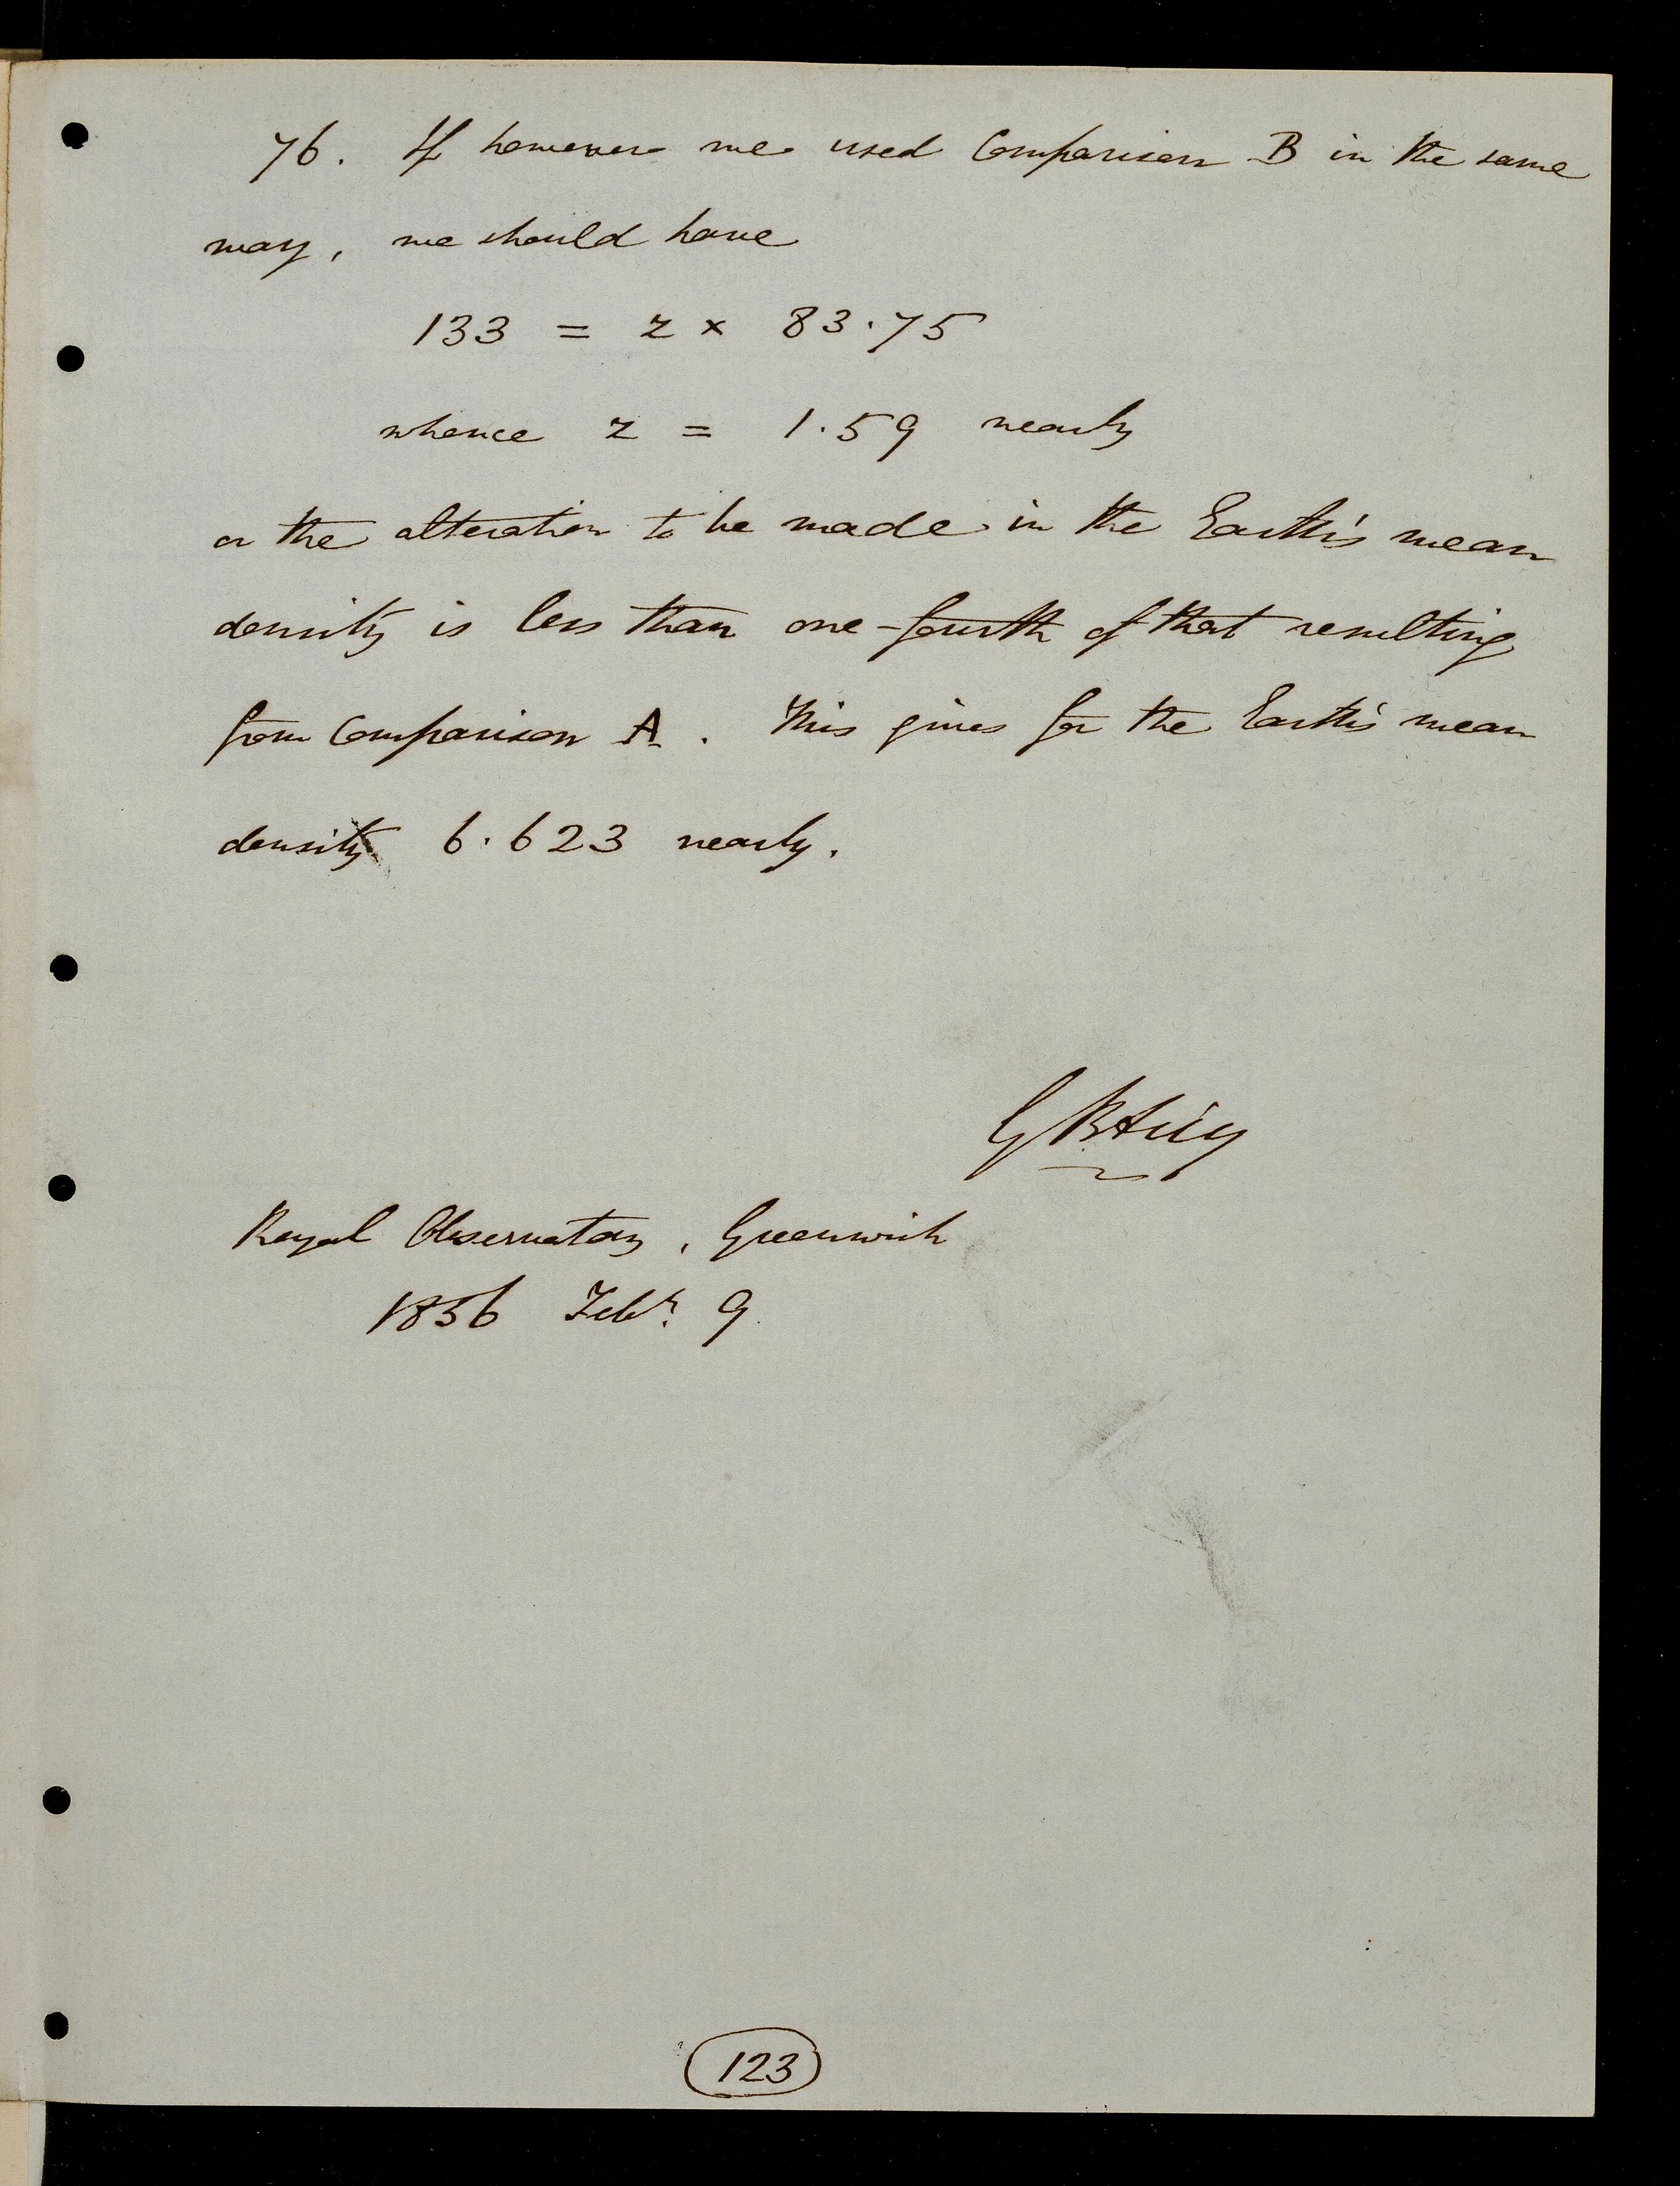 76. If however we used Comparison B in the same
way, we should have
133 = z × 83.75
whence z = 1.59 nearly
or the alteration to be made in the Earth's mean
density is less than one-fourth of that resulting
from Comparison A. This gives for the Earth's mean
density 6.623 nearly.
G B Airy
Royal Observatory, Greenwich
1856 Feby. 9
123